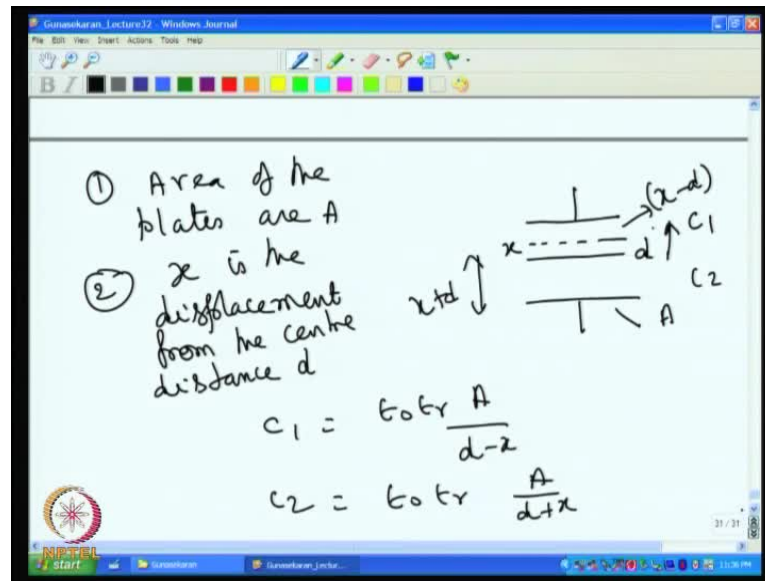 Gunasekaran_Lecture32 - Windows Journal
File Edit View Insert Actions Tools Help
B I
① Area of the
plates are A
② x is the
displacement
from the centre
distance d
(x-d)
x
d
C1
x+d
C2
A
C1 = ϵ0 ϵr A
d-x
C2 = ϵ0 ϵr A
d+x
31 / 31
NPTEL
start
Gunasekaran
Gunasekaran_Lectur...
11:36 PM